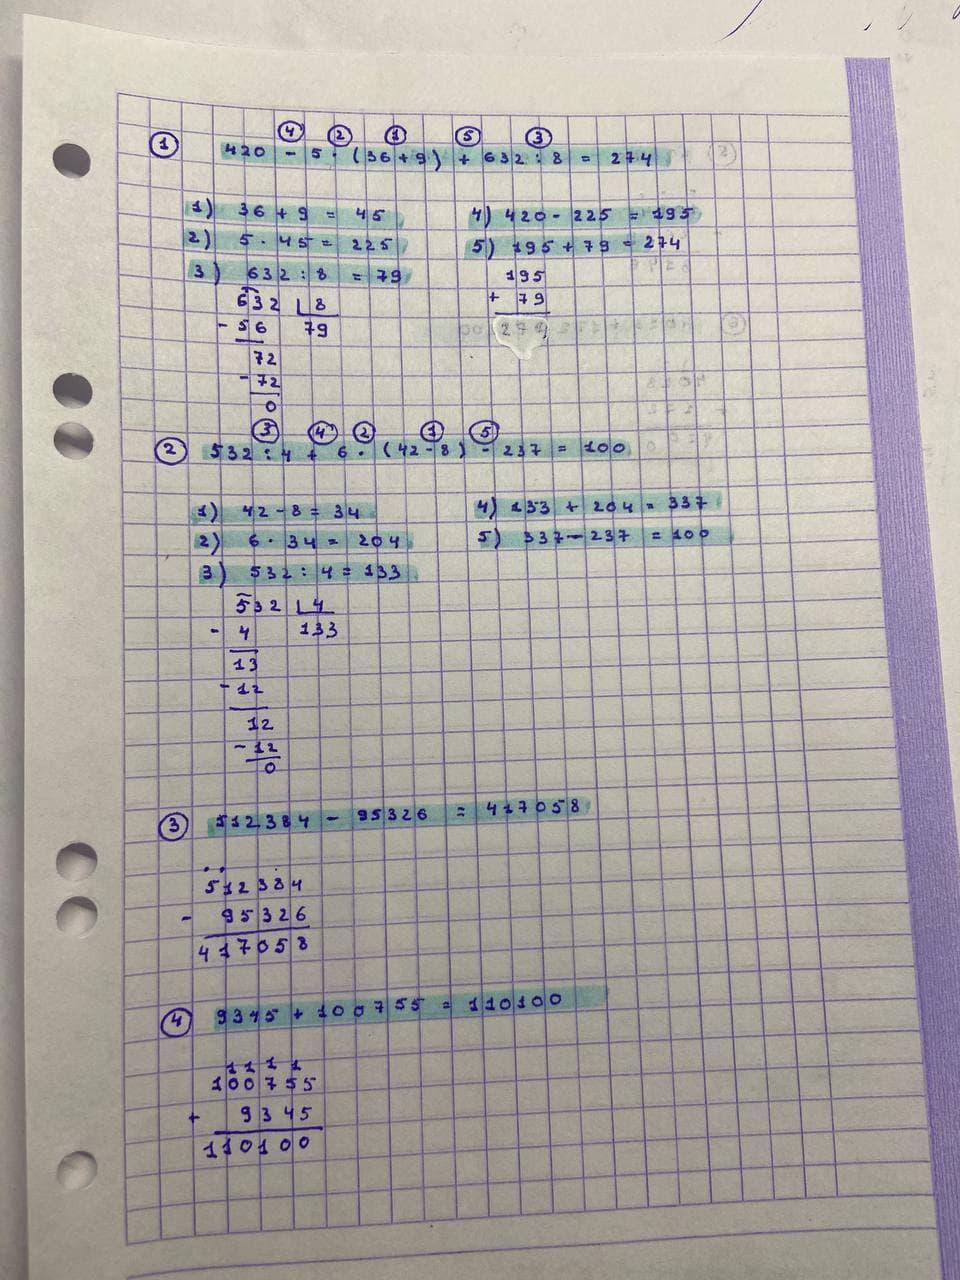 ④ ② ① ⑤ ③
① 420 - 5 · (36+9) + 632 : 8 = 274
1) 36 + 9 = 45
2) 5 · 45 = 225
3) 632 : 8 = 79
632 8
- 56 79
72
- 72
0
4) 420 - 225 = 195
5) 195 + 79 = 274
195
+ 79
274
③ ④ ② ① ⑤
② 532 : 4 + 6 · (42 - 8) - 237 = 100
1) 42 - 8 = 34
2) 6 · 34 = 204
3) 532 : 4 = 133
532 4
- 4 133
13
- 12
12
- 12
0
4) 133 + 204 = 337
5) 337 - 237 = 100
③ 512384 - 95326 = 417058
512384
- 95326
417058
④ 9345 + 100755 = 110100
1 1 1 1
100755
+ 9345
110100